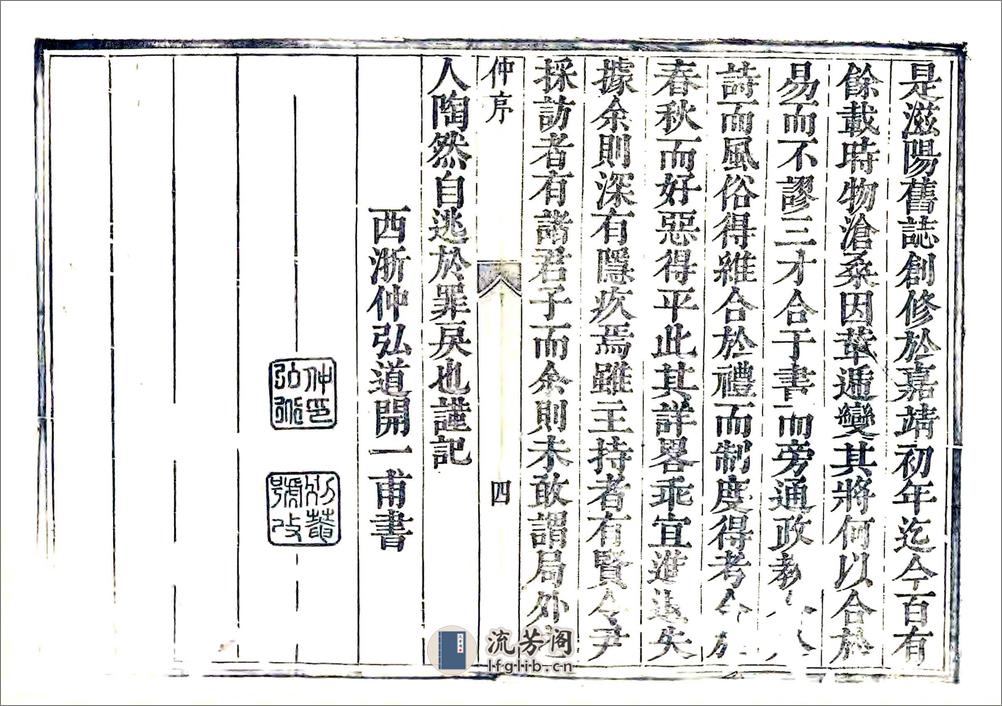 是滋陽舊誌創修於嘉靖初年迄今百有
餘載時物滄桑因革遞變其將何以合於
易而不謬三才合于書而旁通政教合於
詩而風俗得維合於禮而制度得考合於
春秋而好惡得平此其詳畧乖宜進退失
據余則深有隱疚焉雖主持者有賢令尹
採訪者有諸君子而余則未敢謂局外之
仲序
四
人陶然自逃於罪戾也謹記
西浙仲弘道開一甫書
仲印弘道
流芳阁
lfglib.cn